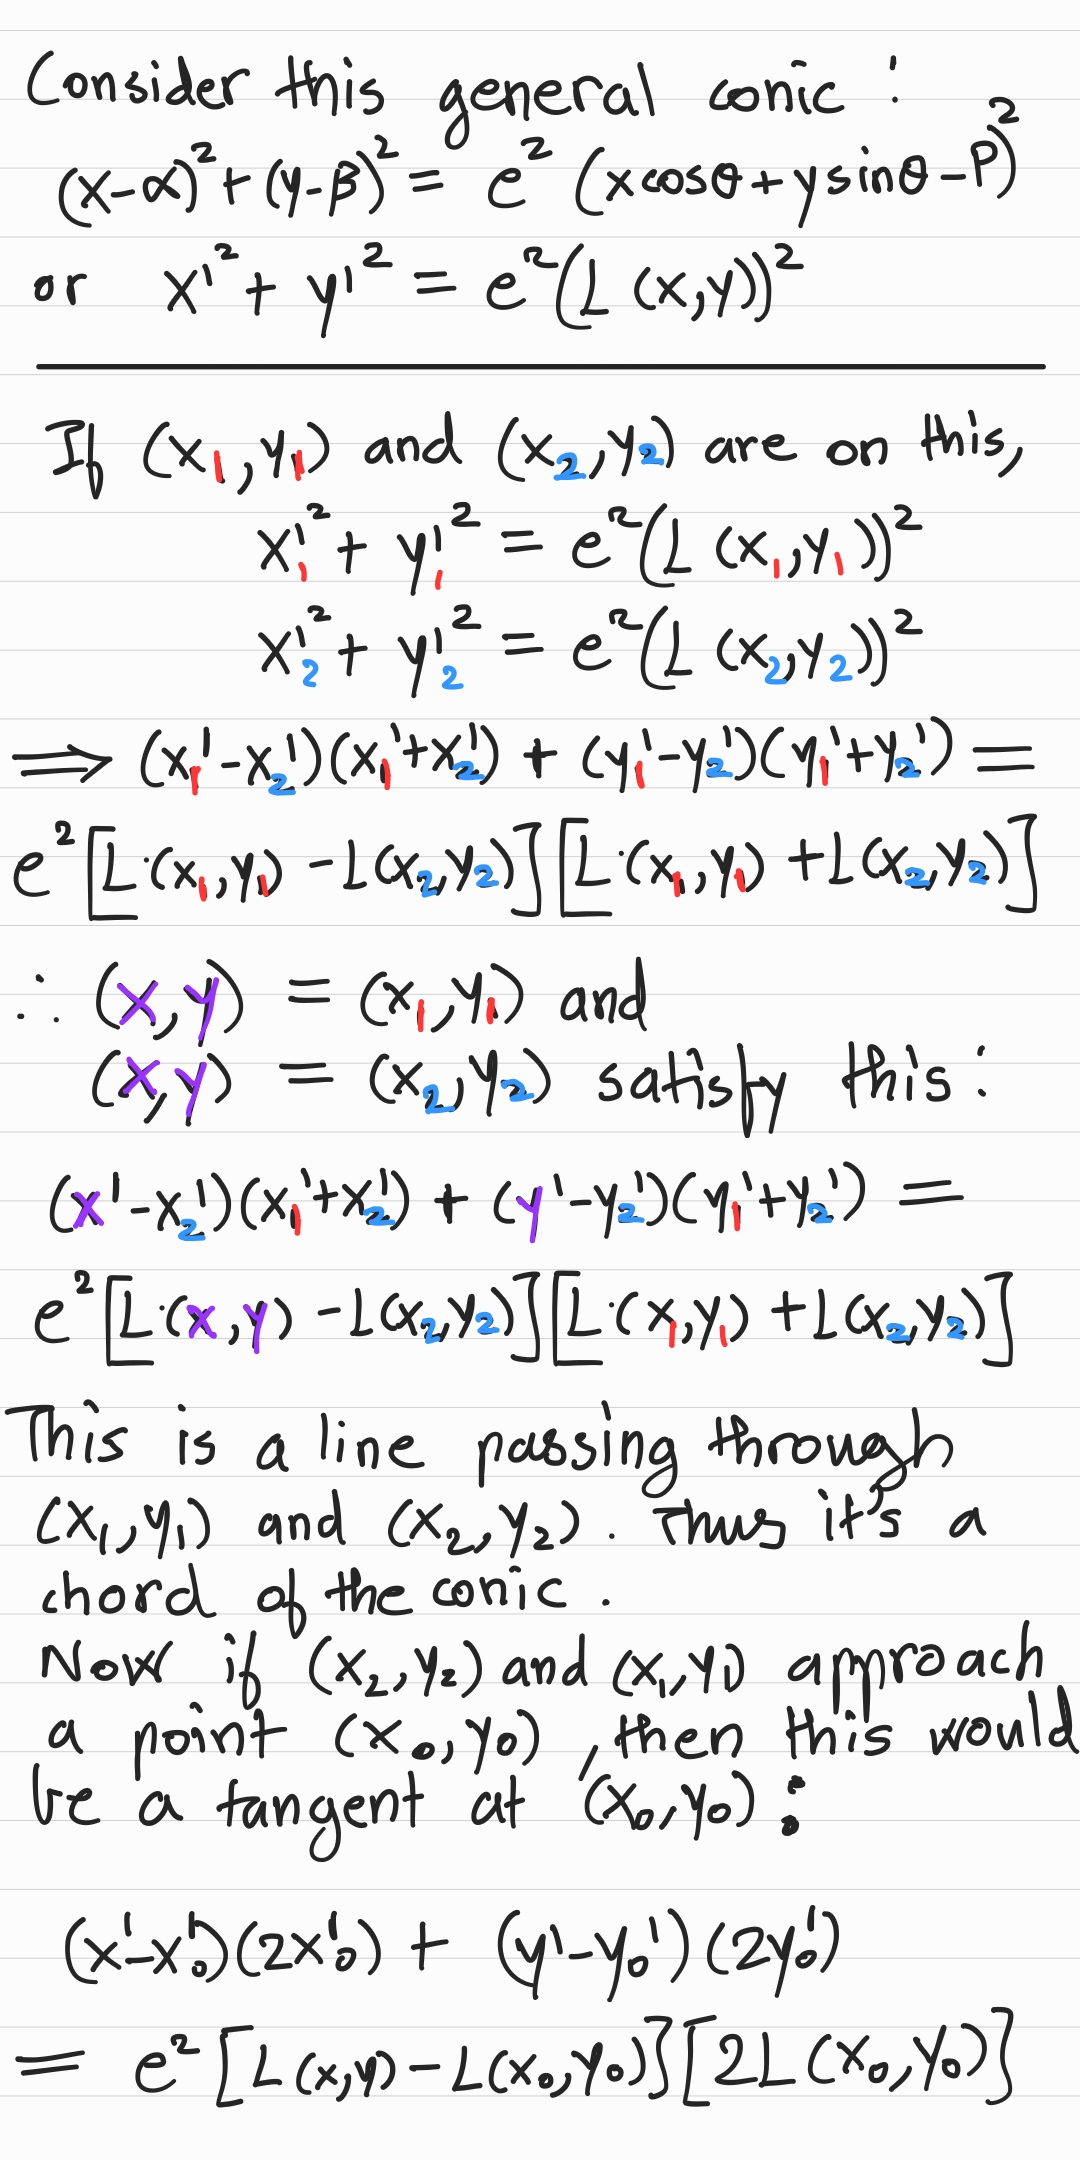 Consider this general conic :
(x-α)² + (y-β)² = e² (x cosθ + y sinθ - P)²
or x'² + y'² = e²(L (x,y))²
If (x₁,y₁) and (x₂,y₂) are on this,
x₁'² + y₁'² = e²(L (x₁,y₁))²
x₂'² + y₂'² = e²(L (x₂,y₂))²
⟹ (x₁'-x₂')(x₁'+x₂') + (y₁'-y₂')(y₁'+y₂') =
e² [L (x₁,y₁) - L(x₂,y₂)] [L (x₁,y₁) + L(x₂,y₂)]
∴ (x,y) = (x₁,y₁) and
(x,y) = (x₂,y₂) satisfy this :
(x'-x₂')(x₁'+x₂') + (y'-y₂')(y₁'+y₂') =
e² [L (x,y) - L(x₂,y₂)] [L (x₁,y₁) + L(x₂,y₂)]
This is a line passing through
(x₁,y₁) and (x₂,y₂). Thus it's a
chord of the conic .
Now if (x₂,y₂) and (x₁,y₁) approach
a point (x₀,y₀) , then this would
be a tangent at (x₀,y₀) :
(x'-x₀')(2x₀') + (y'-y₀')(2y₀')
= e² [L (x,y) - L(x₀,y₀)] [2L (x₀,y₀)]